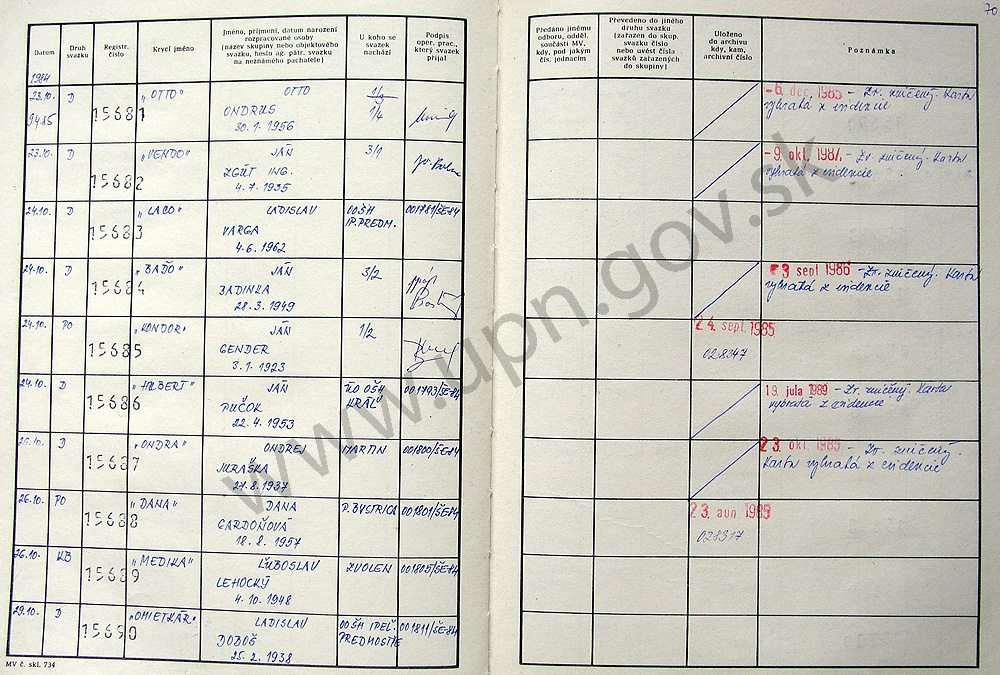 70
Datum
Druh svazku
Registr. číslo
Krycí jméno
Jméno, příjmení, datum narození
rozpracované osoby
(název skupiny nebo objektového
svazku, heslo ag. pátr. svazku
na neznámého pachatele)
U koho se
svazek
nachází
Podpis
oper. prac.,
který svazek
přijal
Předáno jinému
odboru, odděl.
součásti MV,
kdy, pod jakým
čís. jednacím
Převedeno do jiného
druhu svazku
(zařazen do skup.
svazku číslo
nebo uvést čísla
svazků zařazených
do skupiny)
Uloženo
do archivu
kdy, kam,
archivní číslo
Poznámka
1984
23.10. D 15681 "OTTO" OTTO 1/3
9.4.85 ONDRUS 1/4
30. 1. 1956
- 6. dec. 1985 - Zv. zničený. Karta
vybratá z evidencie
23.10. D 15682 "VENDO" JÁN 3/1
ZGÚT ING.
4. 7. 1935
- 9. okt. 1984 - Zv. zničený. Karta
vybratá z evidencie
24.10. D 15683 "LACO" LADISLAV OOŠH 001781/ŠE-84
VARGA IP. PREDM.
4. 6. 1962
24.10. D 15684 "BAĎO" JÁN 3/2
BADINKA
28. 3. 1949
3 sept 1986 - Zv. zničený. Karta
vybratá z evidencie
24.10. PO 15685 "KONDOR" JÁN 1/2
GENDER
3. 1. 1923
24. sept. 1985
028347
24.10. D 15686 "HILBERT" JÁN ÚO OŠH 001793/ŠE-84
PUČOK KRÁĽ
22. 4. 1953
19. júla 1989 - Zv. zničený. Karta
vybratá z evidencie
25.10. D 15687 "ONDRA" ONDREJ MARTIN 001800/ŠE-84
JURAŠKA
27. 8. 1937
23. okt. 1985 - Zv. zničený.
Karta vybratá z evidencie
26.10. PO 15688 "DANA" DANA P. BYSTRICA 001801/ŠE-84
GARDOŇOVÁ
18. 8. 1957
23. aug 1985
028317
26.10. KB 15689 "MEDIKA" ĽUBOSLAV ZVOLEN 001805/ŠE-84
LEHOCKÝ
4. 10. 1948
29.10. D 15690 "OMIETKÁR" LADISLAV OOŠH IPEĽ. 001811/ŠE-84
DODOŠ PREDMOSTIE
25. 2. 1938
MV č. skl. 734
www.upn.gov.sk